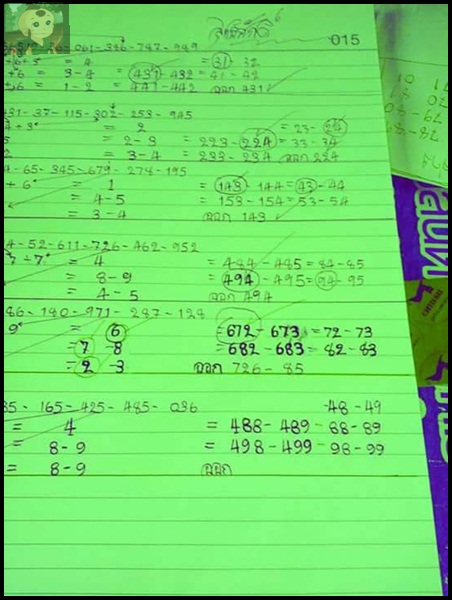 015
061-386-787-989
+6+5 = 4 = 31-32
+6 = 3-4 = 431-432 = 41-42
+6 = 1-2 = 441-442 ออก 431
431-37-115-302-253-945
7+3 = 2 = 23-24
= 2-3 = 223-224 = 33-34
2 = 3-4 = 233-234 ออก 224
4-65-345-679-278-195
+ 6 = 1 = 143-144 = 43-44
= 4-5 = 153-154 = 53-54
= 3-4 ออก 143
4-52-611-726-462-952
7+7 = 4 = 484-485 = 84-85
= 8-9 = 494-495 = 94-95
= 4-5 ออก 494
86-180-971-287-128
9 = 6 = 672-673 = 72-73
= 7-8 = 682-683 = 82-83
= 2-3 ออก 726-85
35-165-425-485-036 -48-49
= 4 = 488-489-88-89
= 8-9 = 498-499-98-99
= 8-9 ออก